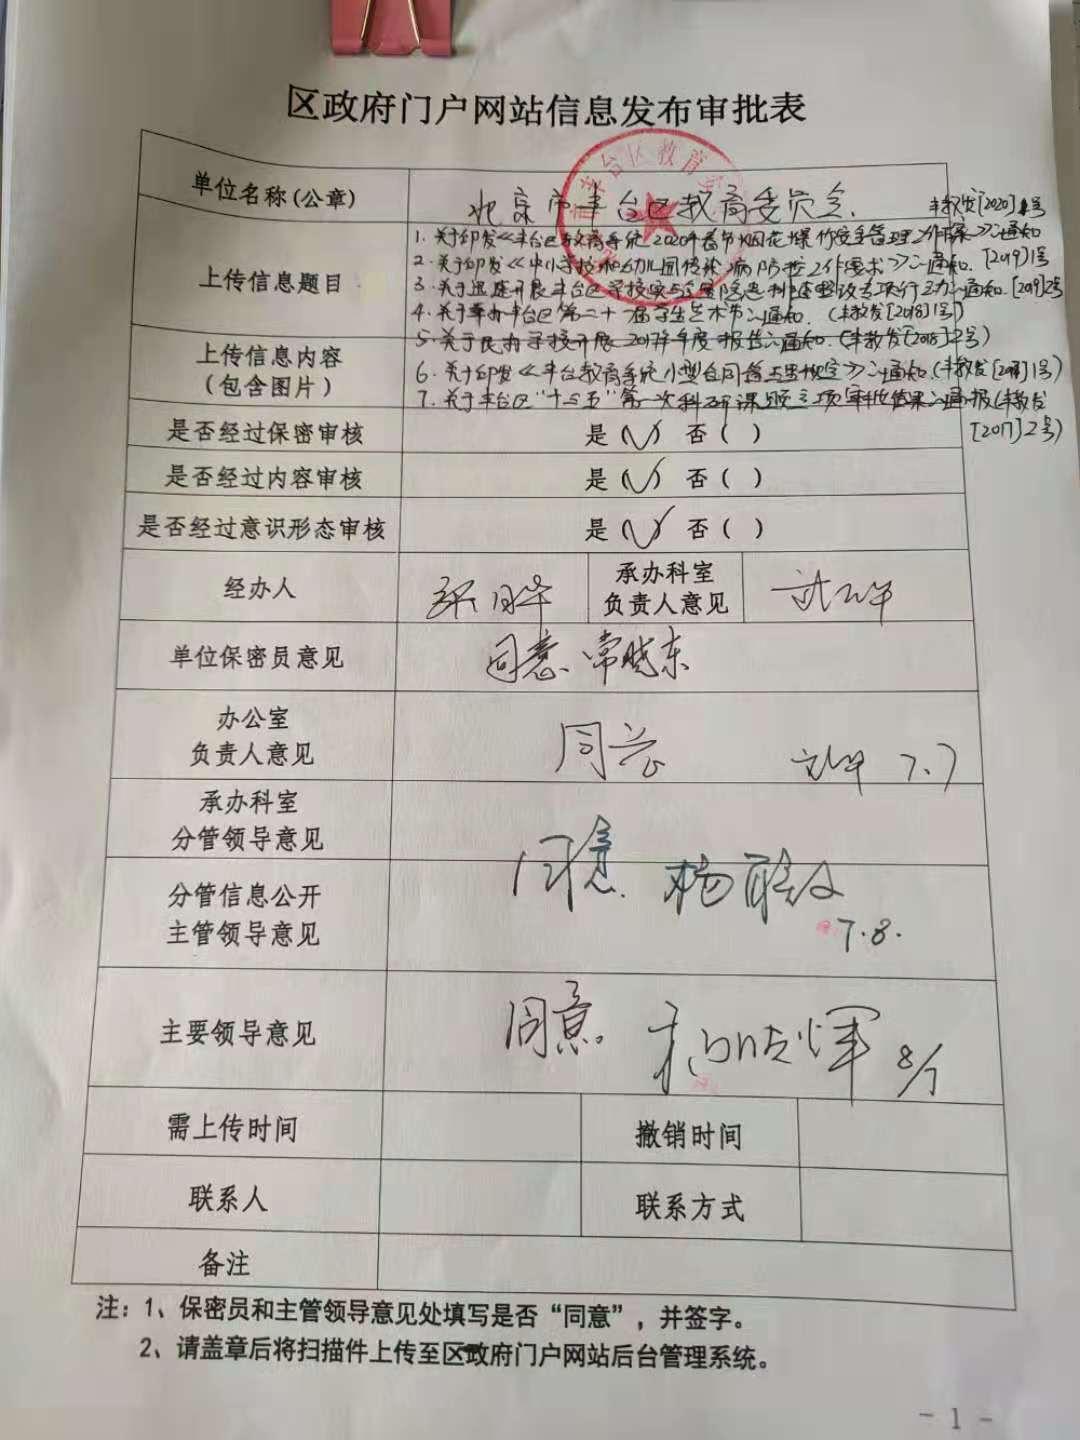 区政府门户网站信息发布审批表
单位名称(公章)
北京市丰台区教育委员会
丰教发[2020]1号
上传信息题目
1. 关于印发《丰台区教育系统2020年春节烟花爆竹安全管理工作方案》的通知
2. 关于印发《中小学校和幼儿园传染病防控工作要求》的通知. [2019]1号
3. 关于迅速开展丰台区学校安全隐患排查整改专项行动的通知. [2019]2号
4. 关于举办丰台区第二十一届学生艺术节的通知. (丰教发[2018]1号)
上传信息内容
(包含图片)
5. 关于民办学校开展2017年年度报告的通知. (丰教发[2018]2号)
6. 关于印发《丰台教育系统小型合同管理规定》的通知. (丰教发[2017]1号)
7. 关于丰台区“十三五”第一次科研课题立项审批结果的通报(丰教发
[2017]2号)
是否经过保密审核
是(√) 否( )
是否经过内容审核
是(√) 否( )
是否经过意识形态审核
是(√) 否( )
经办人
承办科室
负责人意见
单位保密员意见
同意. 常晓东
办公室
负责人意见
同意
7.7
承办科室
分管领导意见
同意. 杨
分管信息公开
主管领导意见
7.8.
主要领导意见
同意.
8/7
需上传时间
撤销时间
联系人
联系方式
备注
注：1、保密员和主管领导意见处填写是否“同意”，并签字。
2、请盖章后将扫描件上传至区政府门户网站后台管理系统。
- 1 -